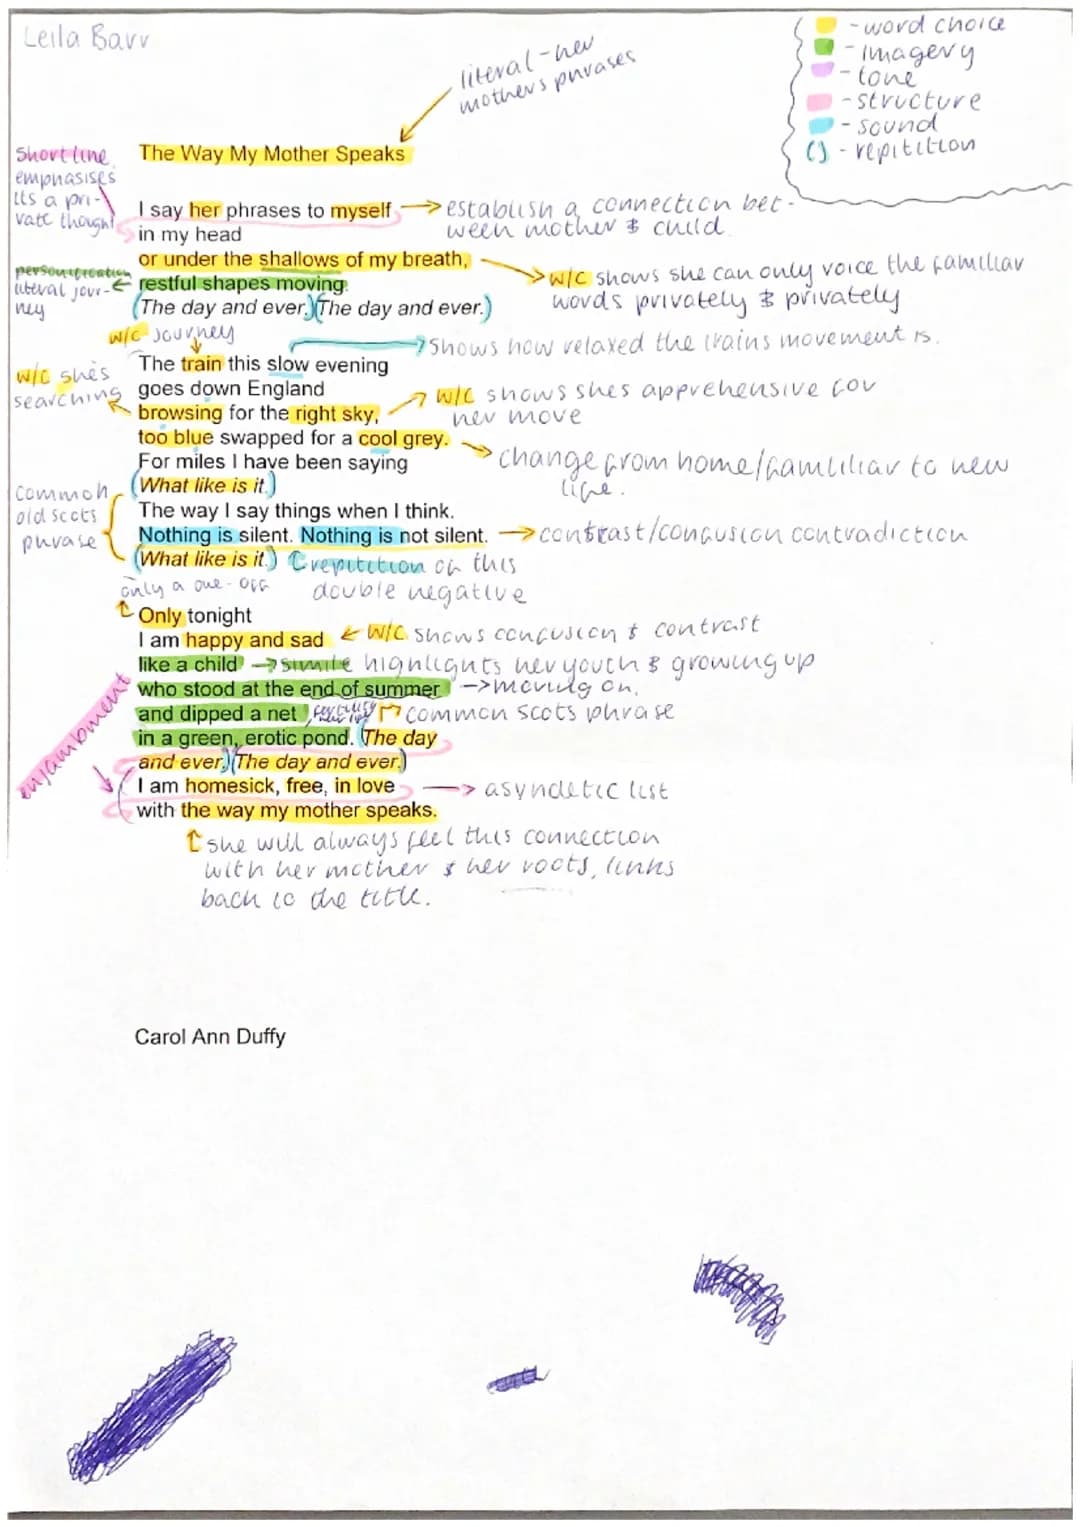 Leila Barr
- word choice
- imagery
- tone
- structure
- sound
() - repitition
literal - her
mothers phrases
The Way My Mother Speaks
Short line
emphasises
its a pri-
vate thought
I say her phrases to myself
in my head
or under the shallows of my breath,
restful shapes moving.
(The day and ever.)(The day and ever.)
establish a connection bet-
ween mother & child.
personification
literal jour-
ney
W/C shows she can only voice the familiar
words privately & privately
W/C Journey
shows how relaxed the trains movement is.
The train this slow evening
goes down England
browsing for the right sky,
too blue swapped for a cool grey.
For miles I have been saying
(What like is it.)
The way I say things when I think.
Nothing is silent. Nothing is not silent.
(What like is it.)
W/C she's
searching
W/C shows shes apprehensive for
her move
change from home/familiar to new
life.
common
old scots
phrase
contrast/confusion contradiction
repitition of this
double negative
only a one-off
Only tonight
I am happy and sad
like a child
who stood at the end of summer
and dipped a net
in a green, erotic pond. (The day
and ever.)(The day and ever.)
I am homesick, free, in love
with the way my mother speaks.
W/C shows confusion & contrast
simile highlights her youth & growing up
moving on.
common scots phrase
enjambment
asyndetic list
she will always feel this connection
with her mother & her roots, links
back to the title.
Carol Ann Duffy